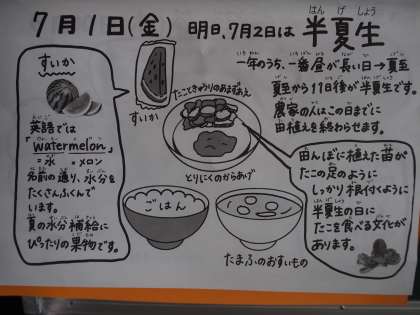 7月1日(金) 明日、7月2日は 半夏生
はん げ しょう
一年のうち、一番昼が長い日→夏至
夏至から11日後が半夏生です。
農家の人はこの日までに
田植えを終わらせます。
すいか
英語では
「watermelon」
=水 ×メロン
名前の通り、水分を
たくさんふくんで
います。
夏の水分補給に
ぴったりの果物です。
すいか
たこときゅうりのあまずあえ
とりにくのからあげ
ごはん
たまふのおすいもの
田んぼに植えた苗が
たこの足のように
しっかり根付くように
半夏生の日に
たこを食べる文化が
あります。